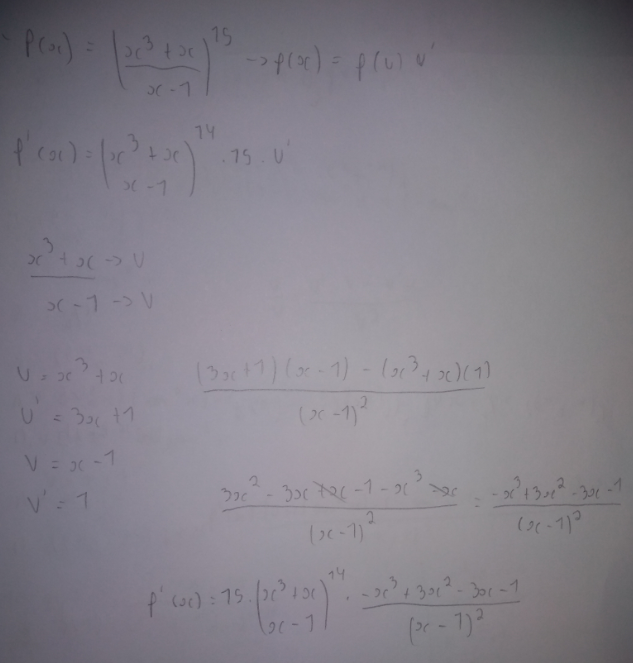 f(x) = (x³ + x / x - 1)¹⁵ → f(x) = f(u) u'
f'(x) = (x³ + x / x - 1)¹⁴ . 15 . u'
x³ + x → U
x - 1 → V
U = x³ + x
U' = 3x + 1
V = x - 1
V' = 1
(3x + 1)(x - 1) - (x³ + x)(1) / (x - 1)²
3x² - 3x + x - 1 - x³ - x / (x - 1)² = -x³ + 3x² - 3x - 1 / (x - 1)²
f'(x) = 15 . (x³ + x / x - 1)¹⁴ . -x³ + 3x² - 3x - 1 / (x - 1)²